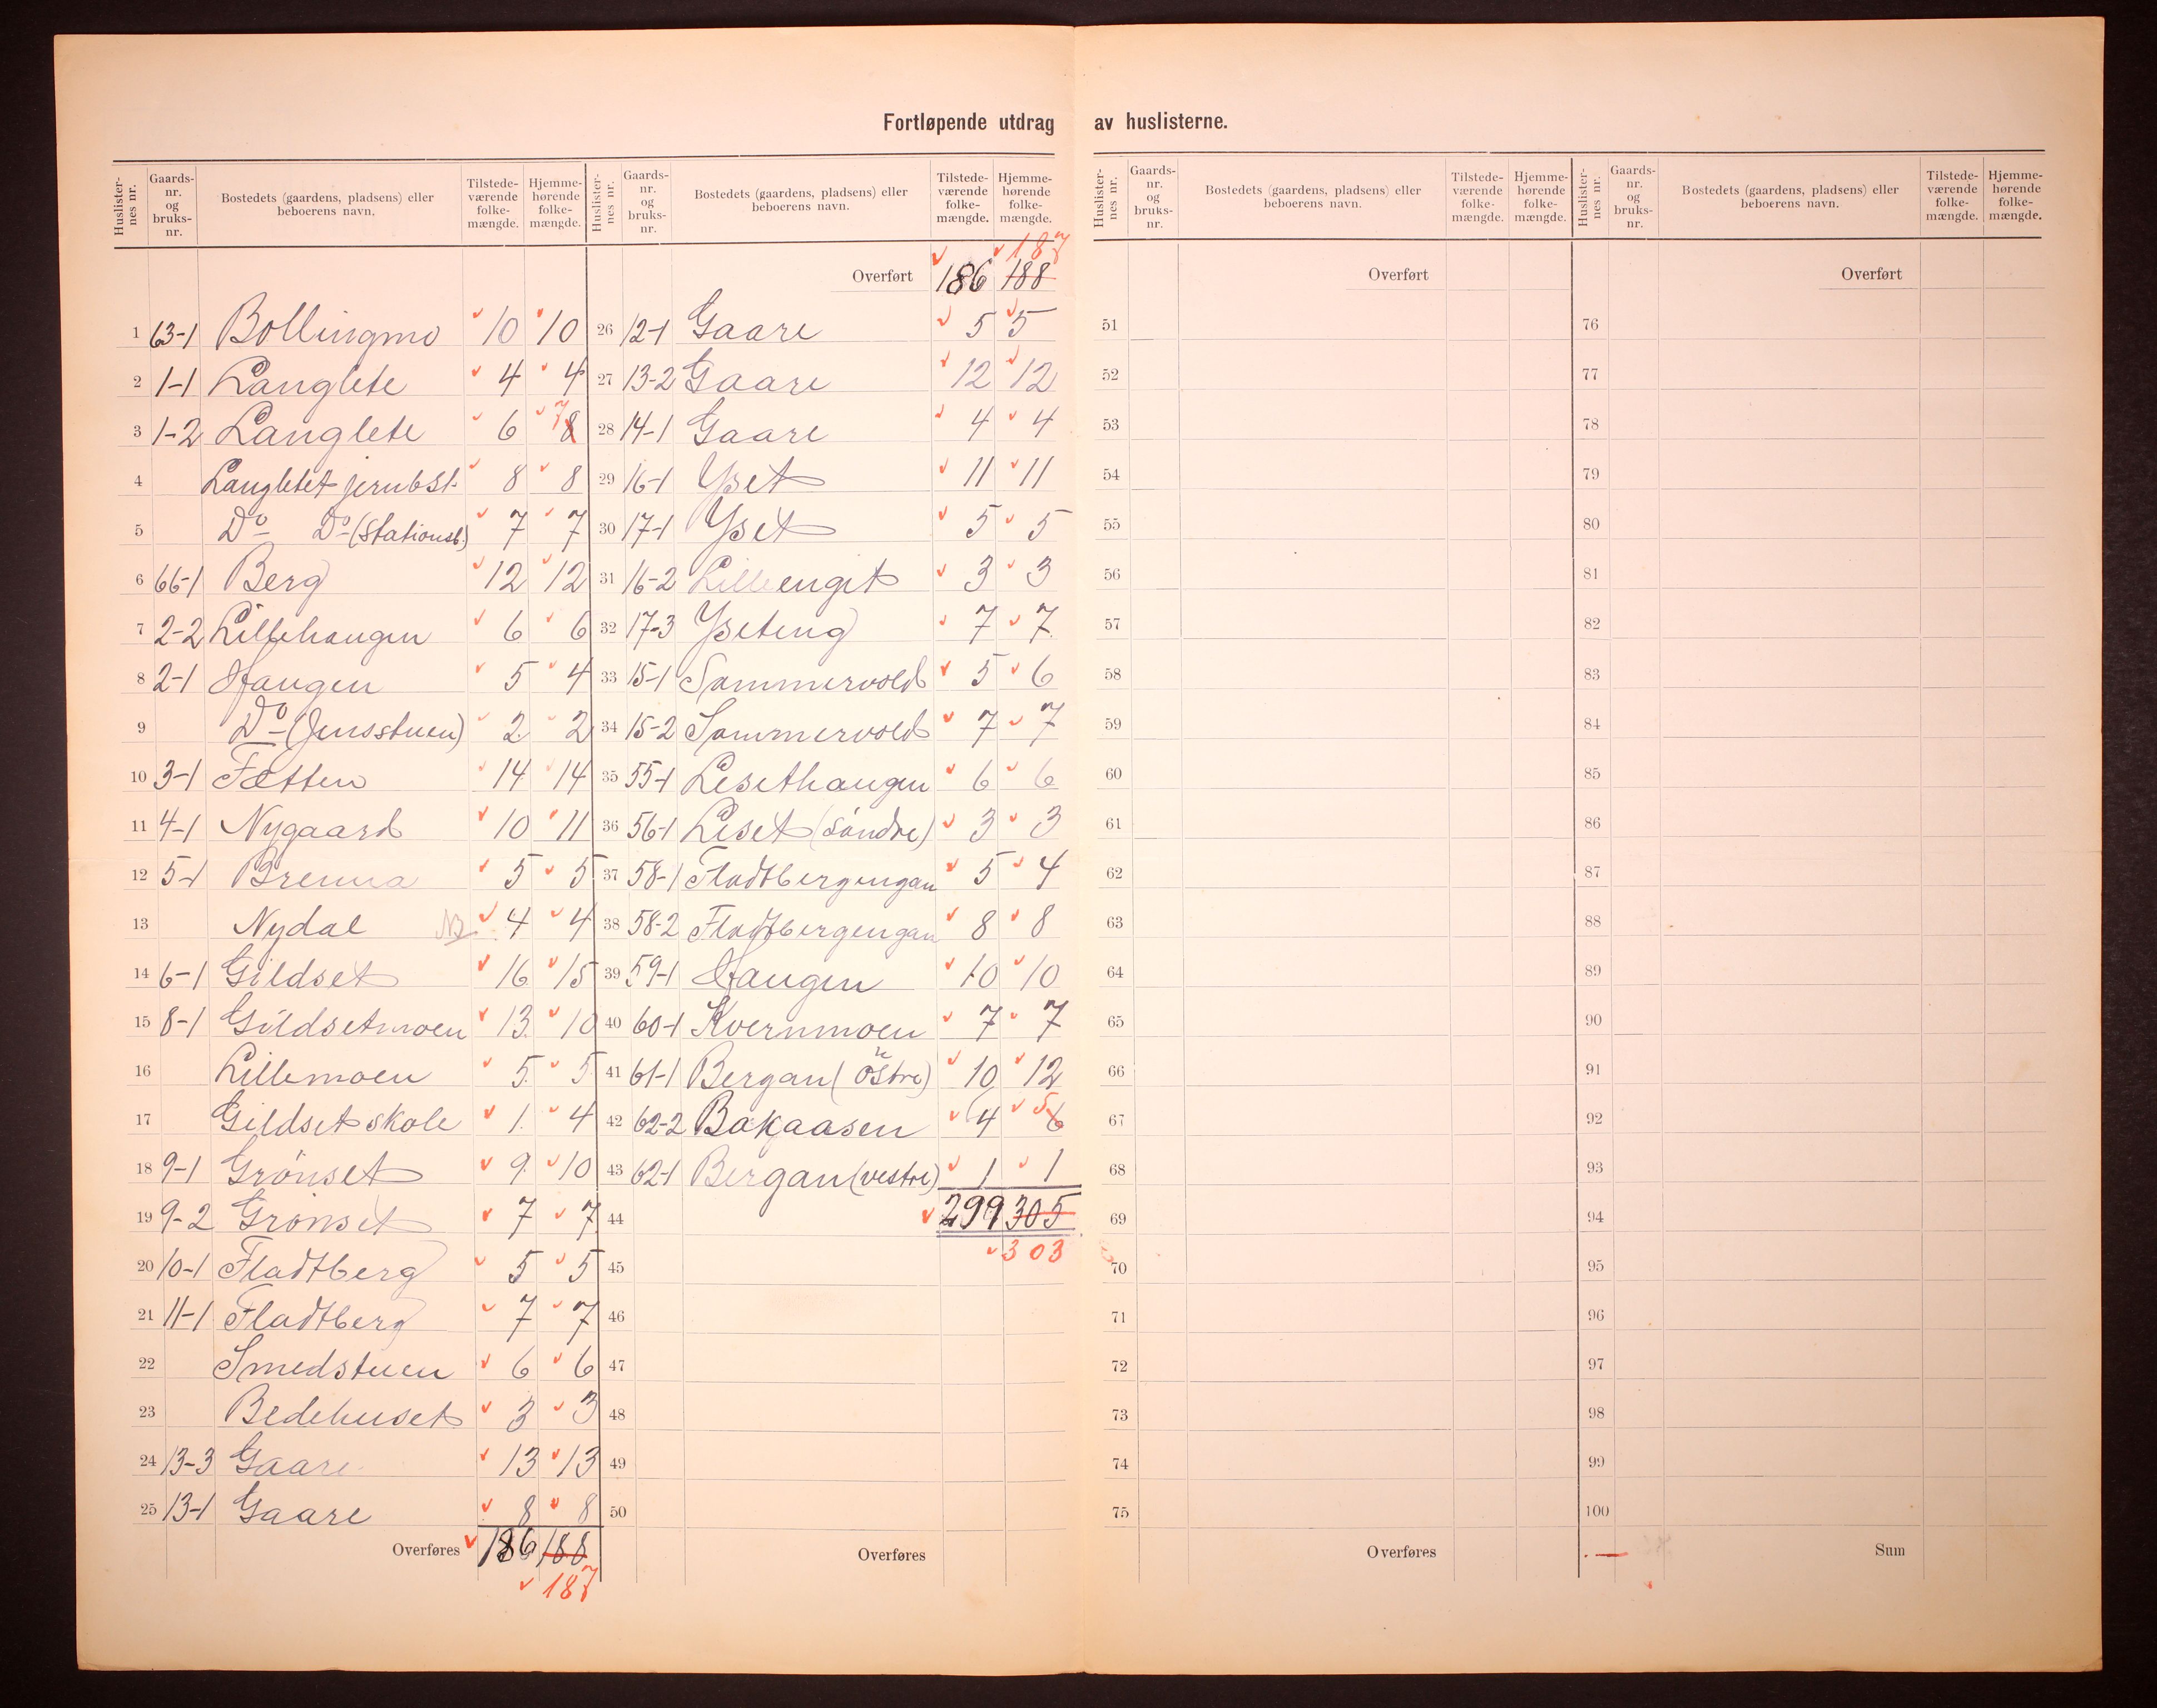 Fortløpende utdrag av huslisterne.
Huslisternes nr. Gaards-nr. og bruks-nr. Bostedets (gaardens, pladsens) eller beboerens navn. Tilstede-værende folke-mængde. Hjemme-hørende folke-mængde.
1 63-1 Bollingmo 10 10
2 1-1 Langlete 4 4
3 1-2 Langlete 6 8 7
4 Langletet jernbst. 8 8
5 Do Do (Stationsb.) 7 7
6 66-1 Berg 12 12
7 2-2 Lillehaugen 6 6
8 2-1 Haugen 5 4
9 Do (Jensstuen) 2 2
10 3-1 Tætten 14 14
11 4-1 Nygaard 10 11
12 5-1 Brenna 5 5
13 Nydal NB 4 4
14 6-1 Gildset 16 15
15 8-1 Gildsetmoen 13 10
16 Lillemoen 5 5
17 Gildset skole 1 4
18 9-1 Grönset 9 10
19 9-2 Grönset 7 7
20 10-1 Fladtberg 5 5
21 11-1 Fladtberg 7 7
22 Smedstuen 6 6
23 Bedehuset 3 3
24 13-3 Gaare 13 13
25 13-1 Gaare 8 8
Overføres 186 188
187
Huslisternes nr. Gaards-nr. og bruks-nr. Bostedets (gaardens, pladsens) eller beboerens navn. Tilstede-værende folke-mængde. Hjemme-hørende folke-mængde.
187
Overført 186 188
26 12-1 Gaare 5 5
27 13-2 Gaare 12 12
28 14-1 Gaare 4 4
29 16-1 Yset 11 11
30 17-1 Yset 5 5
31 16-2 Lilleenget 3 3
32 17-3 Yseteng 7 7
33 15-1 Sommervold 5 6
34 15-2 Sommervold 7 7
35 55-1 Lesethaugen 6 6
36 56-1 Leset (söndre) 3 3
37 58-1 Fladtbergengan 5 4
38 58-2 Fladtbergengan 8 8
39 59-1 Haugen 10 10
40 60-1 Kvernmoen 7 7
41 61-1 Bergan (östre) 10 12
42 62-2 Bakaasen 4 6 5
43 62-1 Bergan (vestre) 1 1
44 299 305
45 303
46
47
48
49
50
Overføres
Huslisternes nr. Gaards-nr. og bruks-nr. Bostedets (gaardens, pladsens) eller beboerens navn. Tilstede-værende folke-mængde. Hjemme-hørende folke-mængde.
Overført
51
52
53
54
55
56
57
58
59
60
61
62
63
64
65
66
67
68
69
70
71
72
73
74
75
Overføres
Huslisternes nr. Gaards-nr. og bruks-nr. Bostedets (gaardens, pladsens) eller beboerens navn. Tilstede-værende folke-mængde. Hjemme-hørende folke-mængde.
Overført
76
77
78
79
80
81
82
83
84
85
86
87
88
89
90
91
92
93
94
95
96
97
98
99
100
Sum